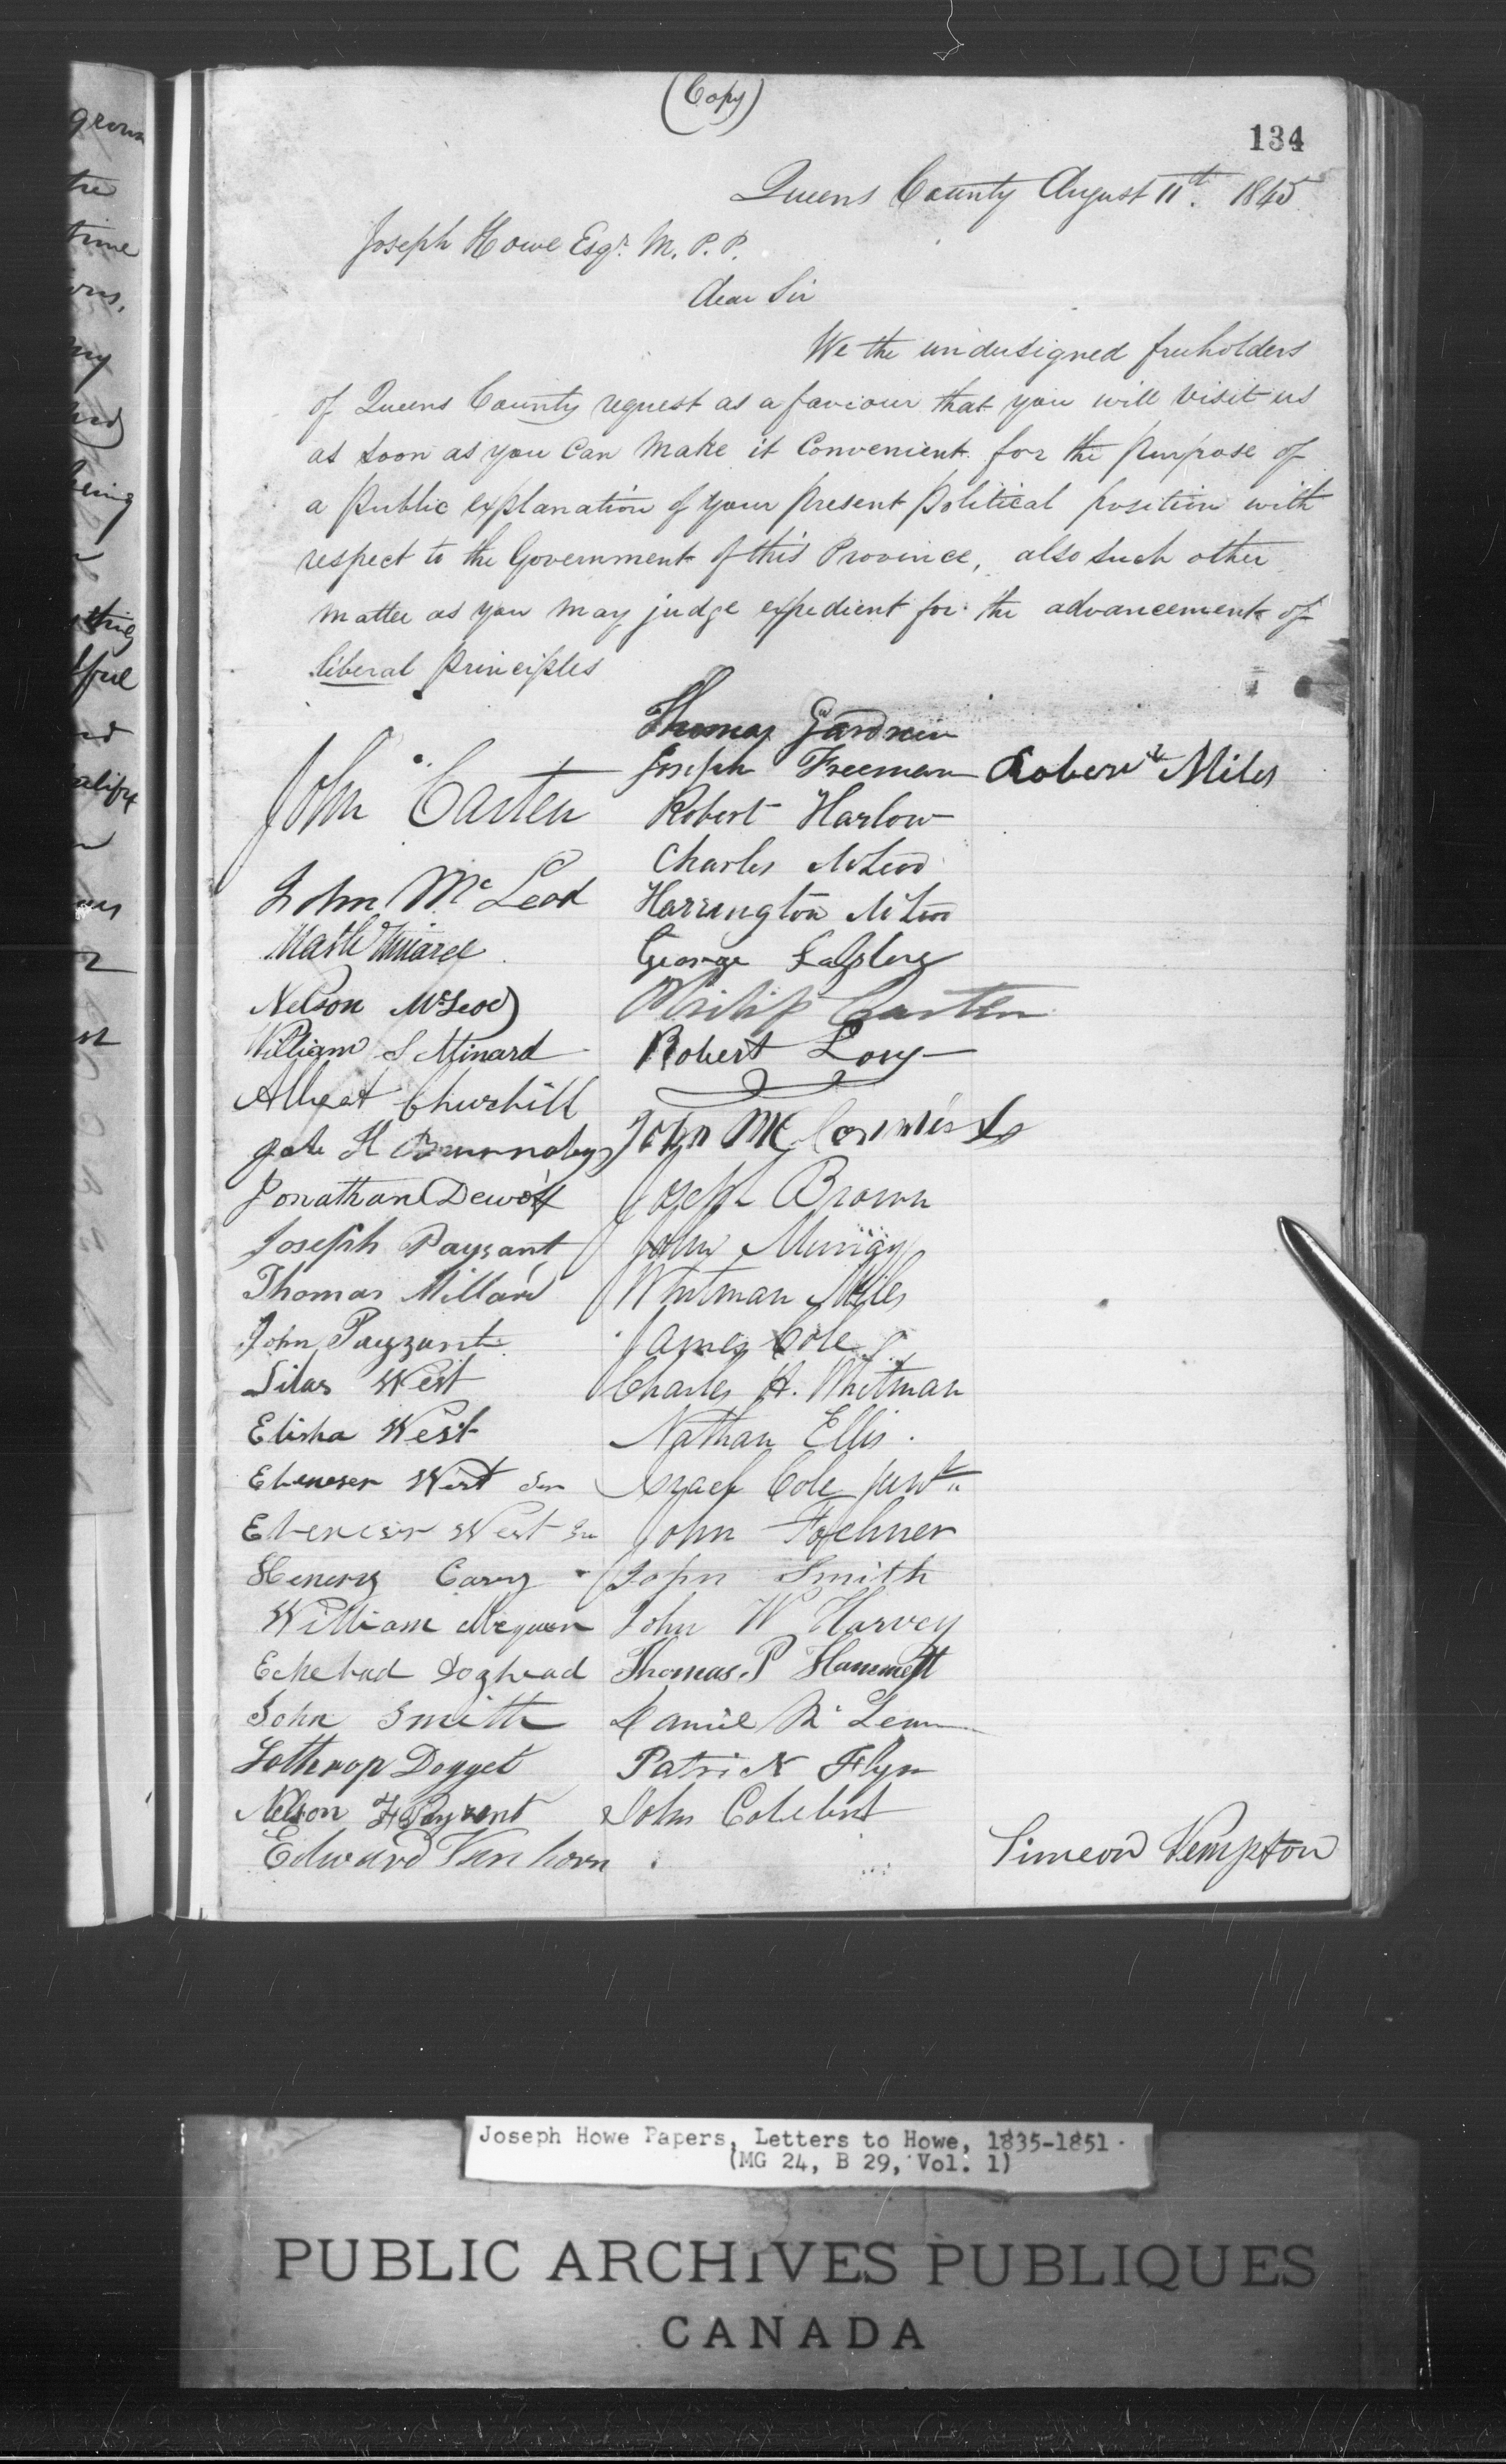 (Copy)
134
Queens County August 11th. 1845
Joseph Howe Esqr. M. P. P.
Dear Sir
We the undersigned freeholders
of Queens County request as a faviour that you will visit us
as soon as you can make it convenient for the purpose of
a public explanation of your present political position with
respect to the Government of this Province, also such other
matter as you may judge expedient for the advancement of
liberal principles
Thomas Gardner
Joseph Freeman Robert Miles
John Carten Robert Harlow
Charles McLeod
John Mc Leod Harrington McLeod
George
Nelson McLeod Philip Carten
William S Minard Robert Long
Albert Churchill
John Mc
Jonathan Dewolf Joseph Brown
Joseph Payzant John
Thomas Millard Whitman Miles
John Payzant James Cole
Silas West Charles H. Whitman
Elisha West Nathan Ellis.
Ebeneser West Sen Cole
Ebeneser West John
Henery Carey John Smith
William John W Harvey
Doghead Thomas. P Hammett
John Smith Daniel Mc
Lothrop Dogget Patrick Flyn
Nelson F Payzent John
Edward Vanhorn Simeon Kempton
grown
the
time
my
being
Joseph Howe Papers, Letters to Howe, 1835-1851
(MG 24, B 29, Vol. 1)
PUBLIC ARCHIVES PUBLIQUES
CANADA